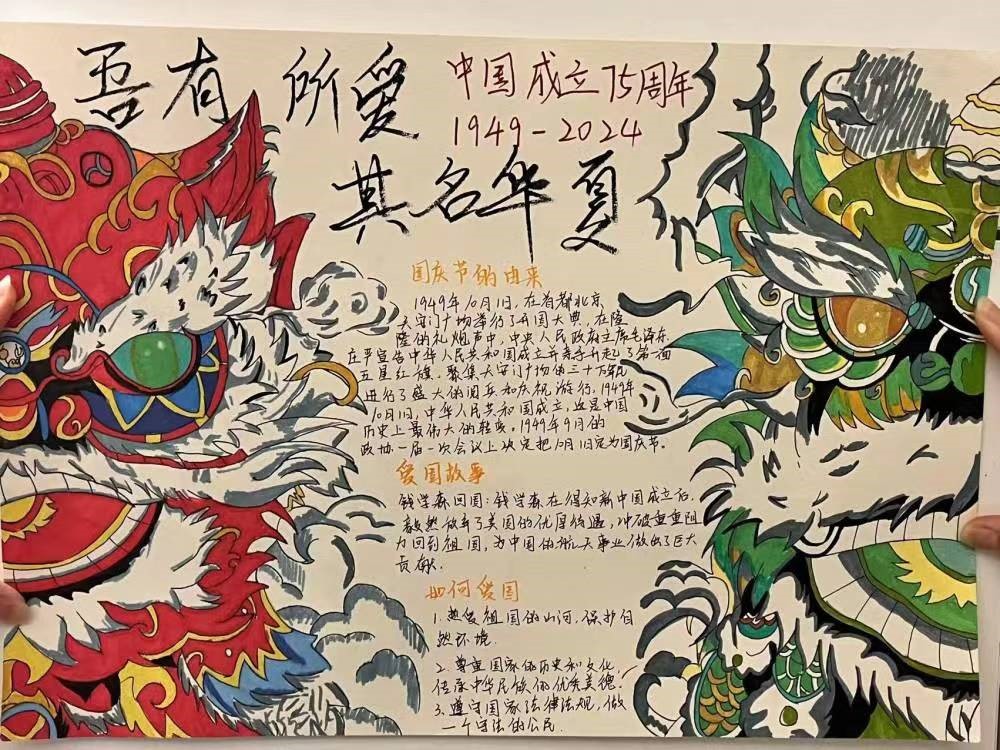 吾有所爱
中国成立75周年
1949-2024
其名华夏
国庆节的由来
1949年10月1日,在首都北京
天安门广场举行了开国大典,在隆
隆的礼炮声中,中央人民政府主席毛泽东
庄严宣告中华人民共和国成立并亲手升起了第一面
五星红旗。聚集天安门广场的三十万军民
进行了盛大的阅兵和庆祝游行。1949年
10月1日,中华人民共和国成立,这是中国
历史上最伟大的转变。1949年9月的
政协一届一次会议上决定把10月1日定为国庆节。
爱国故事
钱学森回国:钱学森在得知新中国成立后,
毅然放弃了美国的优厚待遇,冲破重重阻
力回到祖国,为中国的航天事业做出了巨大
贡献。
如何爱国
1.热爱祖国的山河,保护自
然环境.
2.尊重国家的历史和文化,
传承中华民族的优秀美德.
3.遵守国家法律法规,做
一个守法的公民.